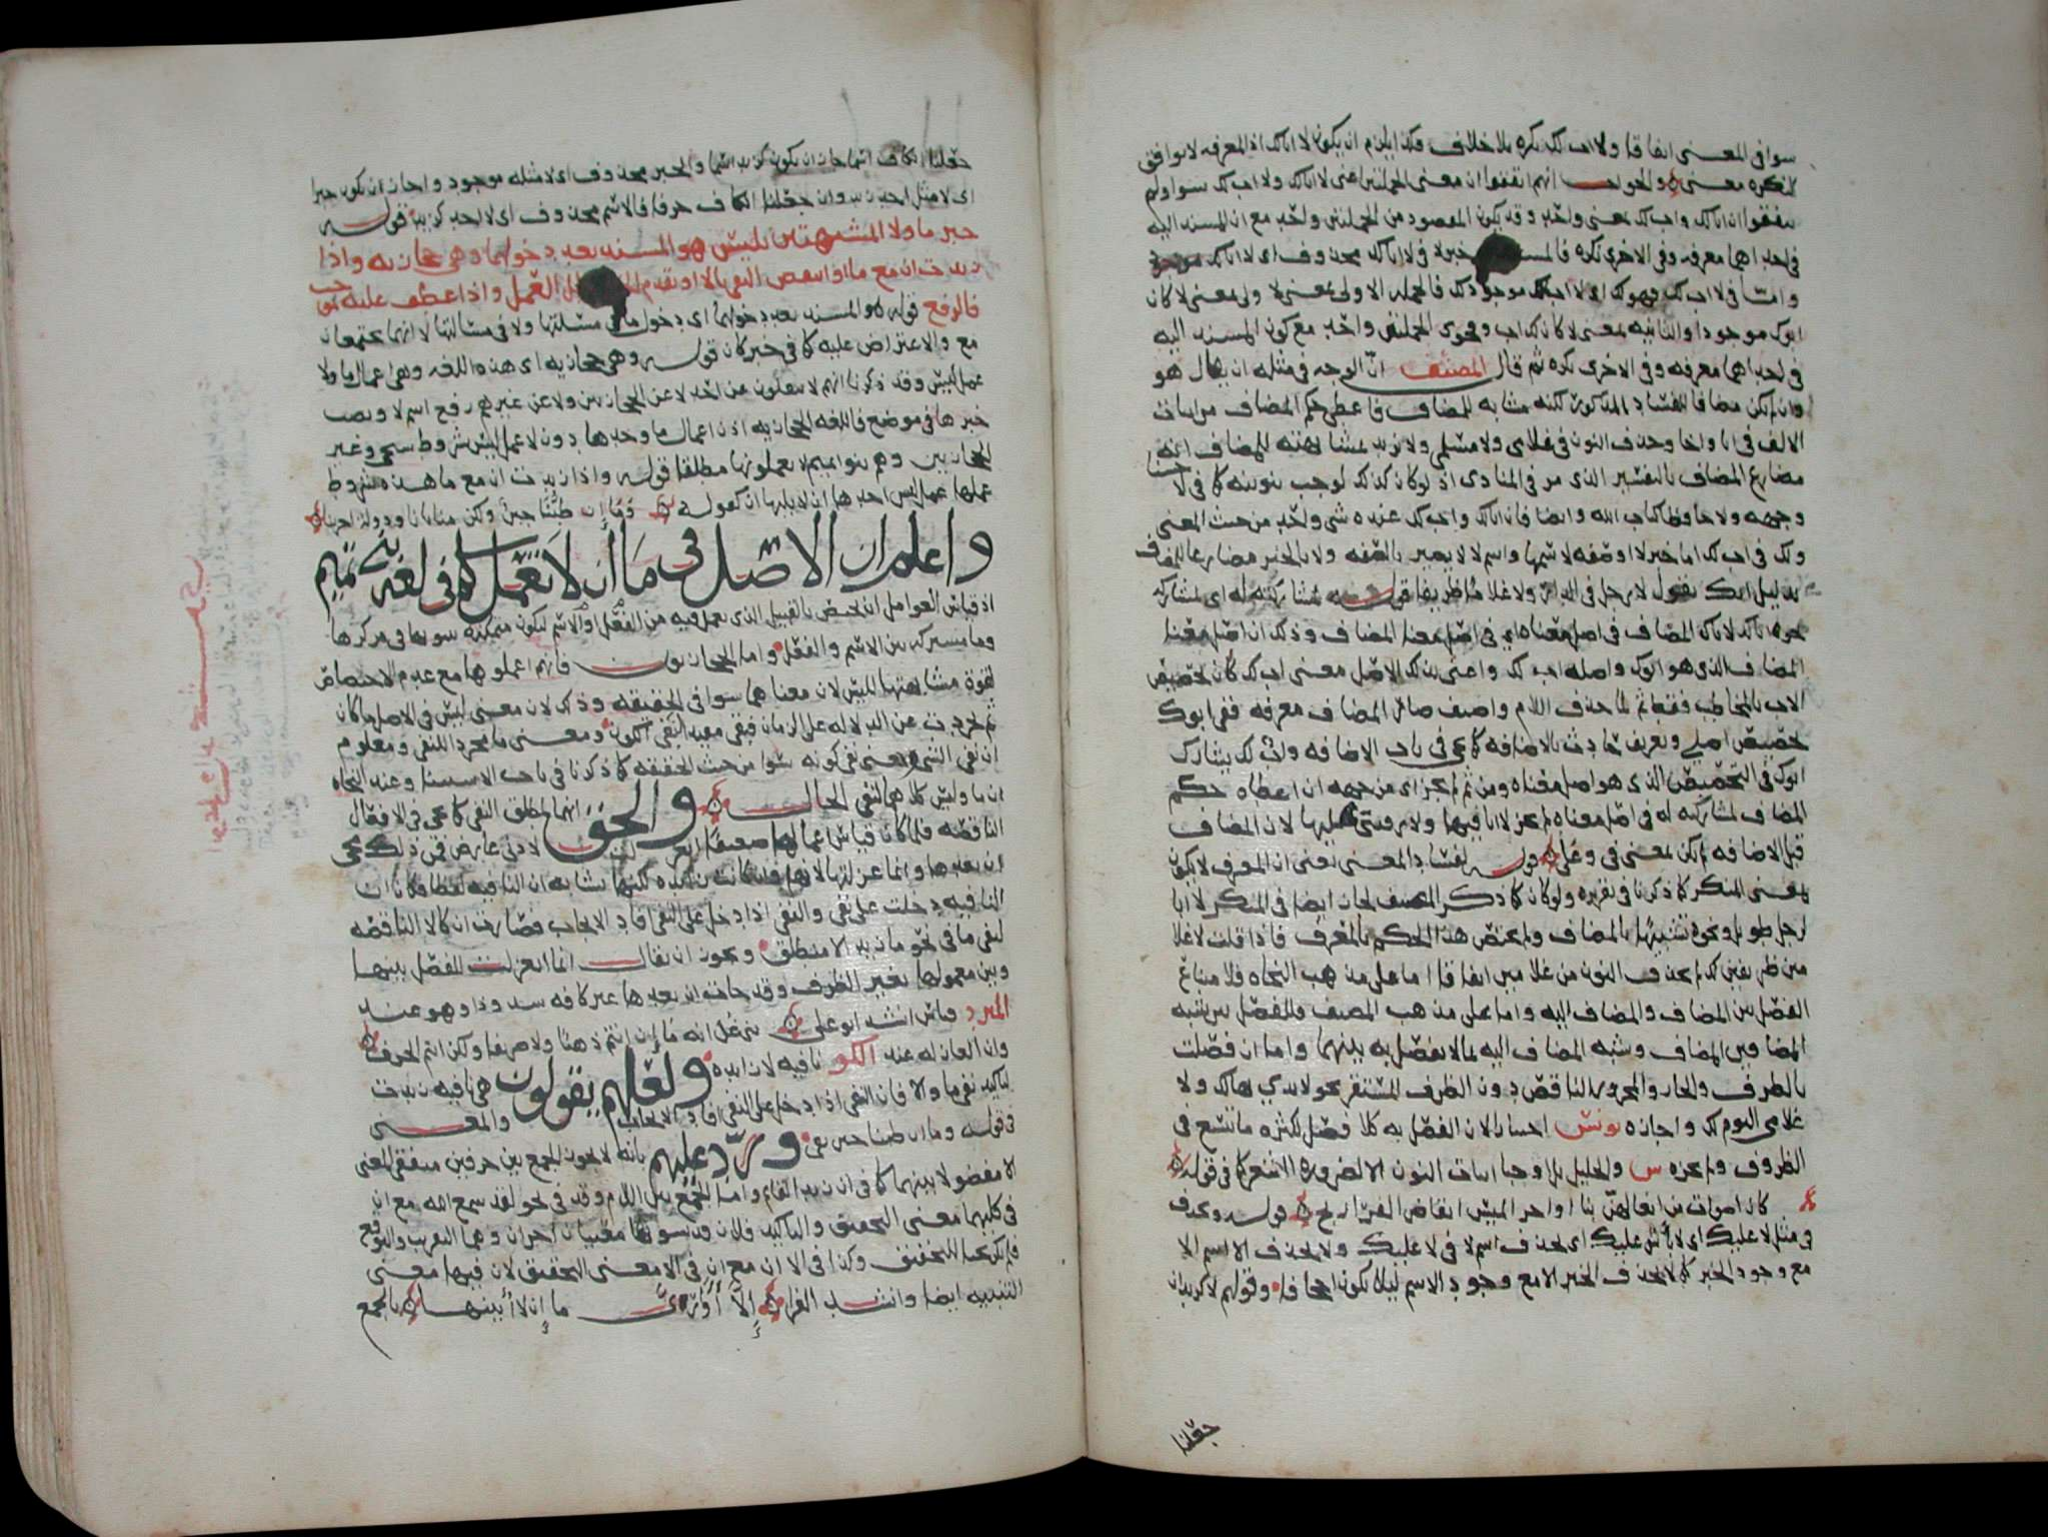 سوا في المعنى اتفاقا ولا اب لك نكره بلا خلاف فكذا يلزم ان يكون لا اباك اذ المعرفه لا توافق
النكره معنى والجواب انهم اتفقوا ان معنى الجملتين اعنى لا اباك ولا اب لك سوا ولم
يتفقوا ان اباك واب لك بمعنى واحد وقد يكون المقصود من الجملتين واحد مع ان المسند اليه
في احداهما معرفه وفي الاخرى نكره فالمسند خبر لا في لا اباك محذوف اى لا اباك موجود
وامّا في لا اب لك فهو لك اى لا اب لك موجود لك فالجمله الاولى بمعنى لا ولى بمعنى لا كان
ابوك موجودا والثانيه بمعنى لا كان لك اب وفحوى الجملتين واحد مع كون المسند اليه
في احداهما معرفه وفي الاخرى نكره ثم قال المصنف انّ الوجه في مثله ان يقال هو
وان لم يكن مضافا للفساد المذكور لكنه مشابه للمضاف فاعطى حكم المضاف من اثبات
الالف في ابا واخا وحذف النون في غلامى ولا مسلمى ولا نريد بمشابهته للمضاف انه
مضارع المضاف بالتفسير الذى مر في المنادى اذ لو كان كذلك لوجب تنوينه كما في لا حسنا
وجهه ولا حافظا كتاب الله وايضا فان اباك واب لك عنده شى واحد من حيث المعنى
ولك في اب لك اما خبر لا او صفه لاسمها واسم لا لا يصير بالصفه ولا بالخبر مضارعا للمضاف
بدليل انك تقول لا رجل في الدار ولا غلام ظريفا قوله لمشاركته له اى لمشاركة
نحو لا اباك لاباك المضاف في اصل معناه اى في اصل معنا المضاف وذلك ان اصل معنا
المضاف الذى هو ابوك واصله اب لك واعنى بذلك الاصل معنى اب لك كان تخصيص
الاب بالمخاطب فقط ثم لما حذف اللام واضيف صار المضاف معرفه ففي ابوك
تخصيص اصلي وتعريف حادث بالاضافه كما يجى في باب الاضافه واب لك يشارك
ابوك في التخصيص الذى هو اصل معناه ومن ثم لم يجز اى من جهه ان اعطاه حكم
المضاف لمشاركته له في اصل معناه لم يجز لا ابا فيها ولا رقيبى عليها لان المضاف
قبل الاضافه لم يكن بمعنى في وعلى قوله لفساد المعنى يعنى ان المعرف لا يكون
بمعنى المنكر كما ذكرنا في تقريره ولو كان كما ذكر المصنف لجاز ايضا في المنكر لا ابا
لرجل طويل ونحوه تشبيها بالمضاف ولم يختص هذا الحكم بالمعرف فاذا قلت لا غلا
مين ظريفين لك لم يحذف النون من غلامين اتفاقا اما على مذهب النحاه فلامتناع
الفصل بين المضاف والمضاف اليه واما على مذهب المصنف وللفصل بين شبه
المضاف وبين المضاف وشبه المضاف اليه بما لا يفصل به بينهما واما ان فصلت
بالظرف والجار والمجرور الناقص دون الظرف المستقر نحو لا يدى بها لك ولا
غلامى اليوم لك واجازه يونس اختيارا لان الفصل به كلا فصل لكثره ما يتسع في
الظروف ولم يجزه س والخليل بل اوجبا اثبات النون الا لضروره الشعر كما في قوله
كان اصوات من ايغالهن بنا اواخر الميس انقاض الفراريج قوله ويحذف
في مثل لا عليك اى لا باس عليك اى يحذف اسم لا في لا عليك ولا يحذف الاسم الا
مع وجود الخبر كما لا يحذف الخبر الا مع وجود الاسم ليلا يكون اجحافا وقولهم لا كزيد ان
جعلنا
جعلنا الكاف اسما جاز ان يكون كزيد اسما والخبر محذوف اى لا مثله موجود واجاز ان يكون خبرا
اى لا مثل احد زيد وان جعلنا الكاف حرفا فالاسم محذوف اى لا احد كزيد قوله
خبر ما ولا المشبهتين بليس هو المسند بعد دخولهما وهى حجازيه واذا
زيدت ان مع ما او انتقض النفى بالا او تقدم الخبر بطل العمل واذا عطف عليه بموجب
فالرفع قوله هو المسند بعد دخولهما اى دخول ما في مسئلتها ولا في مسالتها لا انهما يجتمعان
مع والاعتراض عليه كما في خبر كان قوله وهى حجازيه اى هذه اللغه وهى اعمال ما ولا
عمل ليس وقد ذكرنا انهم لا ينقلون عن احد لا عن الحجازيين ولا عن غيرهم رفع اسم لا ونصب
خبرها في موضع فاللغه الحجازيه اذن اعمال ما وحدها دون لا عمل ليس بشروط ستجى وغير
الحجازيين وهم بنو تميم لا يعملونها مطلقا قوله واذا زيدت ان مع ما هذه شروط
عملها عمل ليس احدها ان لا يليها ان كقوله وَمَا إِن طِبُّنَا جبنٌ ولكن منايانا ودولة اخرينا
واعلم ان الاصل في مَا أن لا تعمل كما في لغة بني تميم
اذ قياس العوامل ان تختص بالقبيل الذى يعمل فيه من الفعل او الاسم ليكون متمكنه بثبوتها في مركزها
وما مشترك بين الاسم والفعل واما الحجازيون فانهم اعملوها مع عدم الاختصاص
لقوة مشابهتها لليس لان معناهما سوا في الحقيقه وذلك لان معنى ليس في الاصل ما كان
ثم تجردت عن الدلاله على الزمان فبقى مفيدا لنفى الكون ومعنى ما مجرد النفى ومعلوم
ان نفى الشى بمعنى نفى كونه سوا من حيث الحقيقه كما ذكرنا في باب الاستثنا وعند النحاه
ان ما وليس كلاهما لنفى الحال والحق انهما لمطلق النفى كما يجى في الافعال
الناقصه فلما كان قياس اعمالها ضعيفا انعزلت لادنى عارض فمن ذلك مجى
ان بعدها وانما عزلتها لانها وان كانت زائده لكنها تشابه ان النافيه لفظا فكان ان
النافيه دخلت على نفى والنفى اذا دخل على النفى افاد الايجاب فصارت ان كالا الناقضه
لنفى ما في نحو ما زيد الا منطلق ويجوز ان يقال انما انعزلت للفصل بينها
وبين معمولها بغير الظرف وقد جات ان بعدها غير كافه شذوذا وهو عند
المبرد قياس انشد ابو على بنى غُدانه مَا إِن انتم ذهبًا ولا صريفا ولكن انتم الخزف
وان العازله عند الكو نافيه لا زايده ولعلهم يقولون هى نافيه زيدت
لتاكيد نفى ما والا فان النفى اذا دخل على النفى افاد الايجاب والمعنى
في قوله وما ان طبنا جبن نفى وردّ عليهم بانه لا يجوز الجمع بين حرفين متفقى المعنى
الا مفصولا بينهما كما في ان زيدا لقائم واما الجمع بين اللام وقد في نحو لقد سمع الله مع ان
في كليهما معنى التحقيق والتاكيد فلان قد يشوبها معنيان اخران وهما التقريب والتوقع
فلم تكن بحتا للتحقيق وكذا في الا ان مع ان في الا معنى التحقيق لان فيها معنى
التنبيه ايضا وانشد الفرا إِلاَّ أَوَارِيَّ ما إِن لا أُبينها بالجمع